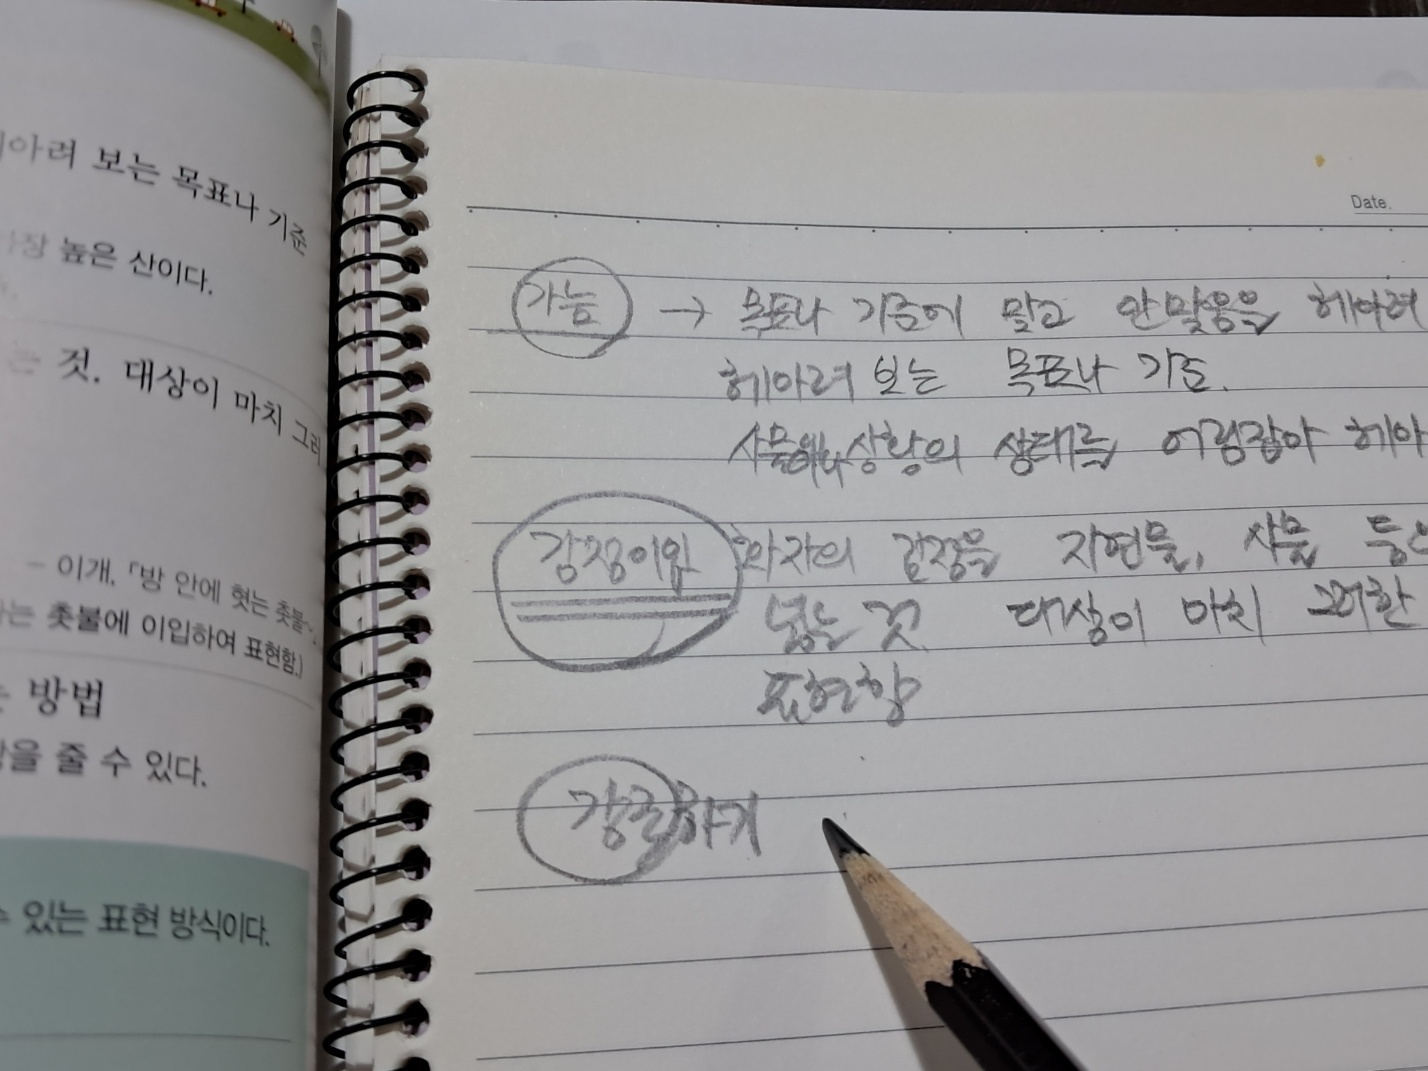 아려 보는 목표나 기준
장 높은 산이다.
는 것. 대상이 마치 그러
- 이개, 「방 안에 혓는 촛불~」
는 촛불에 이입하여 표현함.)
방법
을 줄 수 있다.
있는 표현 방식이다.
Date.
가늠 → 목표나 기준에 맞고 안맞음을 헤아려
헤아려 보는 목표나 기준.
사물이나 상황의 상태를 어림잡아 헤아
감정이입 화자의 감정을 자연물, 사물 등
넣는 것 대상이 마치 그러한
표현함
강조하기